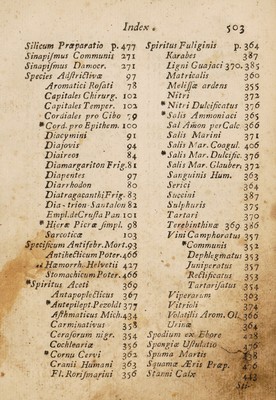 Index.
503
Silicum Præparatio p. 477
Sinapismus Communis 271
Sinapismus Damocr. 271
Species Adstrictivæ 97
Aromatici Rosati 78
Capitales Chirurg. 102
Capitales Temper. 102
Cordiales pro Cibo 79
*Cord. pro Epithem. 100
Diacymini 91
Diajovis 94
Diaireos 84
Diamargariton Frig. 81
Diapentes 97
Diarrhodon 80
Diatragacanthi Frig. 83
Dia-trion-Santalon 82
Empl. de Crusta Pan 101
*Hieræ Picræ simpl. 98
Sarcoticæ 103
Specificum Antifebr. Mort. 93
Antihecticum Poter. 466
Hæmorrh. Helvetii 427
Stomachicum Poter. 466
Spiritus Aceti 369
Antapoplecticus 367
*Antepilept. Pezoldt 377
Asthmaticus Mich. 434
Carminativus 358
Cerasorum nigr. 354
Cochleariæ 356
*Cornu Cervi 362
Cranii Humani 363
Fl. Rorismarini 356
Spiritus Fuliginis p. 364
Karabes 387
Ligni Guajaci 370. 385
Matricalis 360
Melissæ ardens 355
Nitri 372
*Nitri Dulcificatus 376
*Salis Ammoniaci 365
Sal Am̃on per Calc 366
Salis Marini 371
Salis Mar. Coagul. 406
*Salis Mar. Dulcific. 376
Salis Mar. Glauber. 372
Sanguinis Hum. 363
Serici 364
Succini 387
Sulphuris 375
Tartari 370
Terebinthinæ 369 386
Vini Camphoratus 357
*Communis 352
Dephlegmatus 353
Juniperatus 357
Rectificatus 353
Tartarisatus 354
Viperarum 363
Vitrioli 374
Volatilis Arom. Ol. 366
Urinæ 364
Spodium ex Ebore 428
Spongiæ Ustulatio 476
Spuma Martis 398
Squamæ Æris Præp. 476
Stanni Calx 443